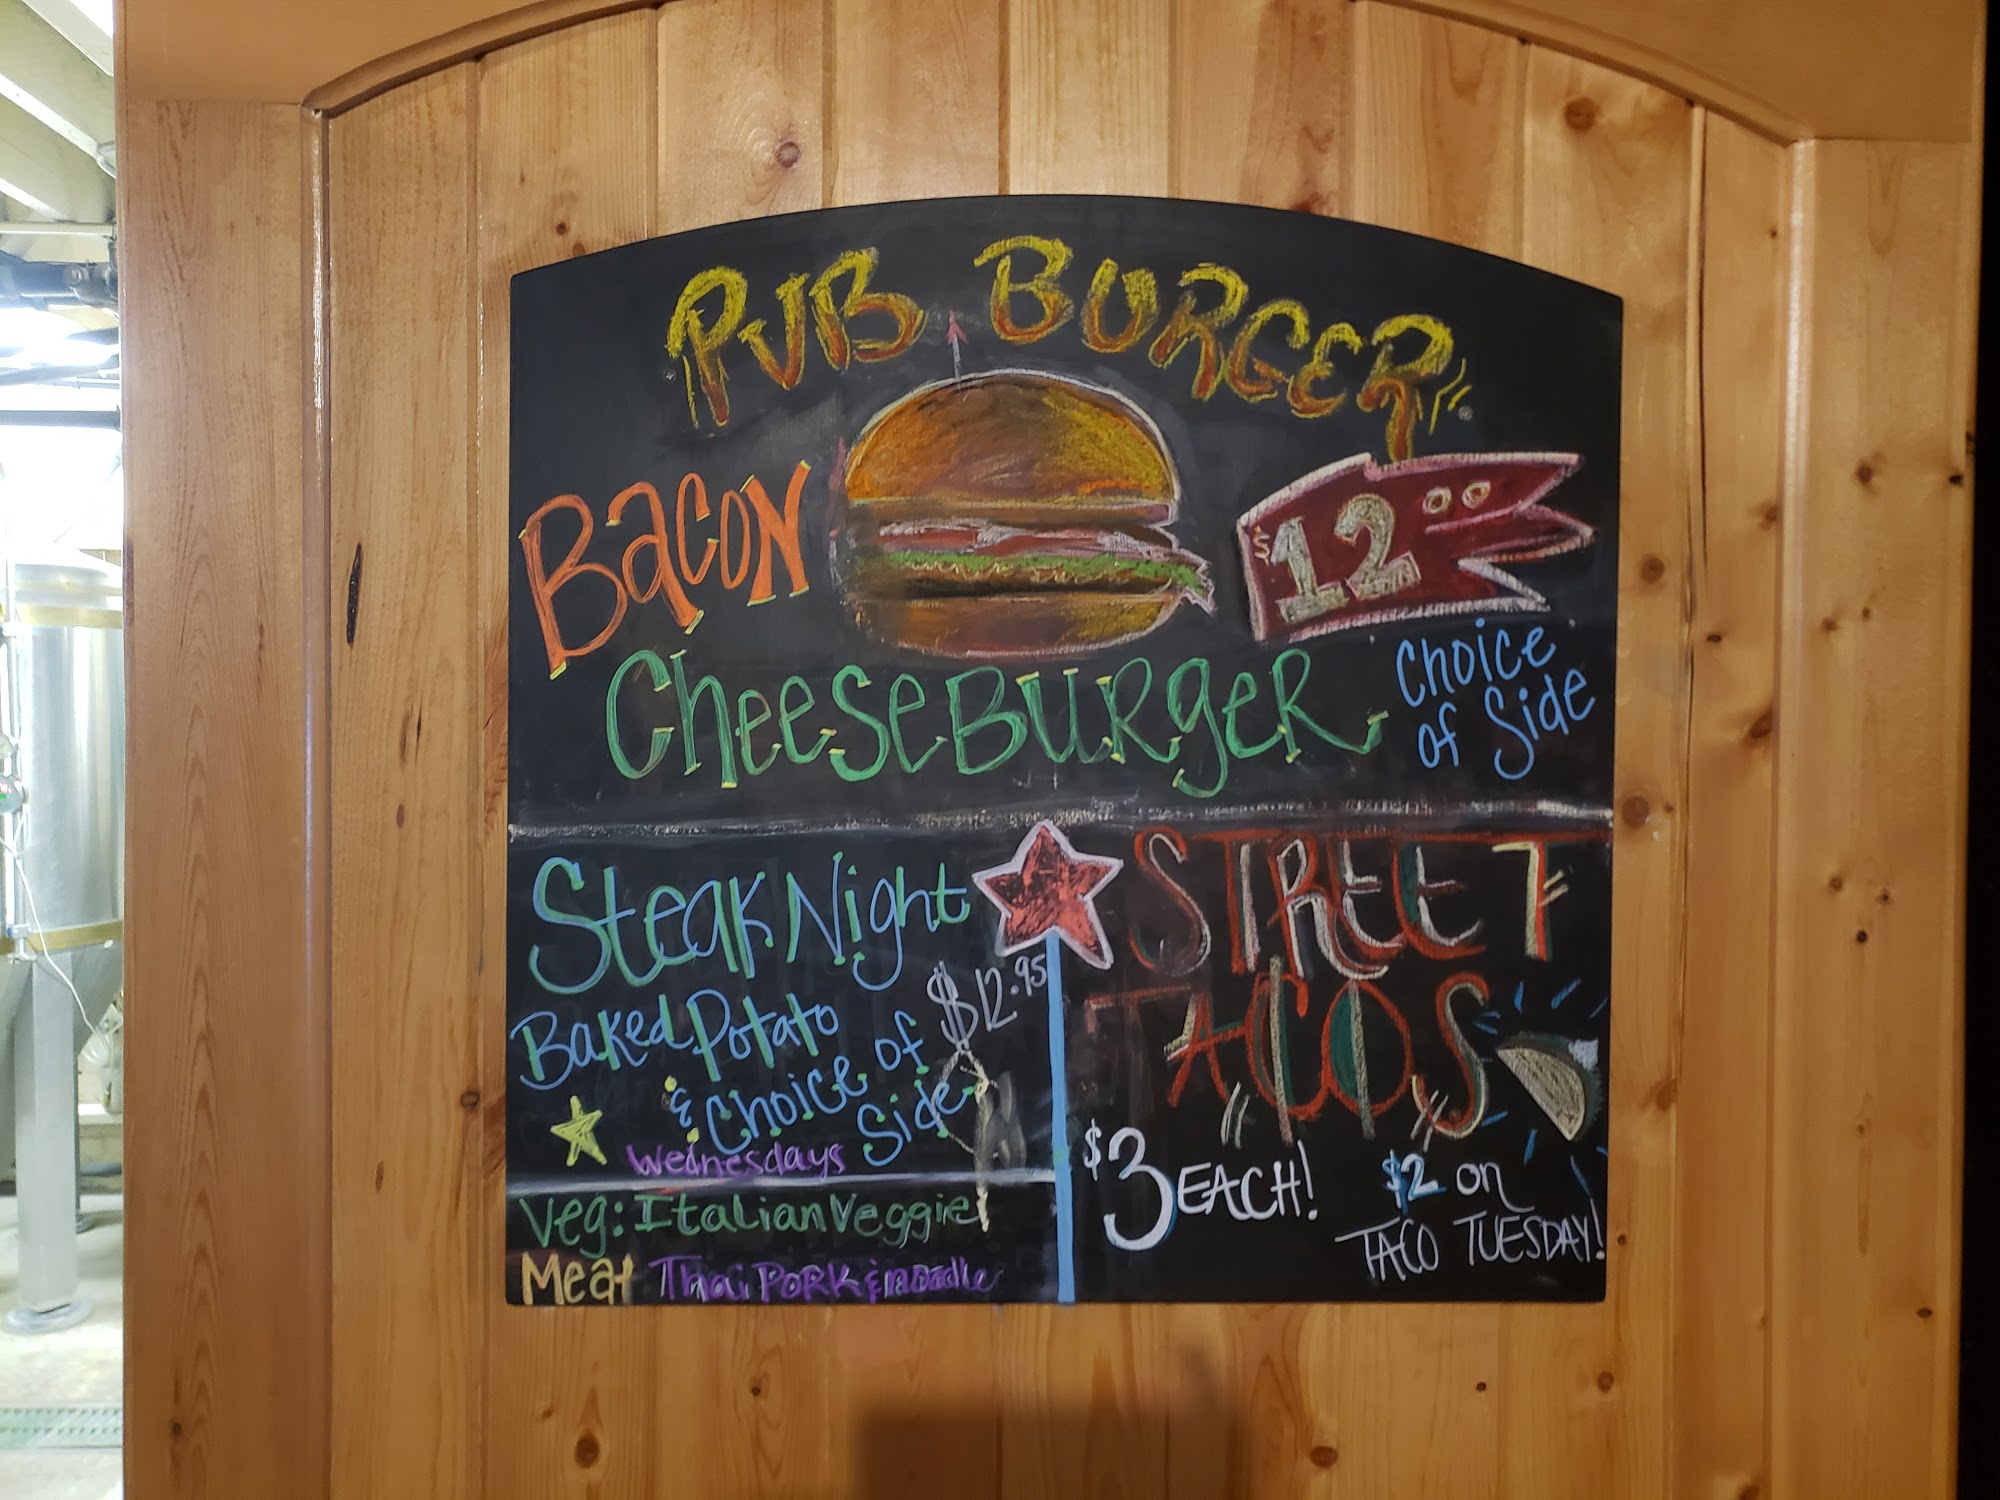 PUB BURGER
Bacon
$12.00
CheeseBURgeR
Choice
of Side
Steak Night
$12.95
Baked Potato
& Choice of
Side
Wednesdays
Veg: Italian Veggie
Meat Thai Pork & noodle
STREET
TACOS
$3 EACH!
$2 on
TACO TUESDAY!